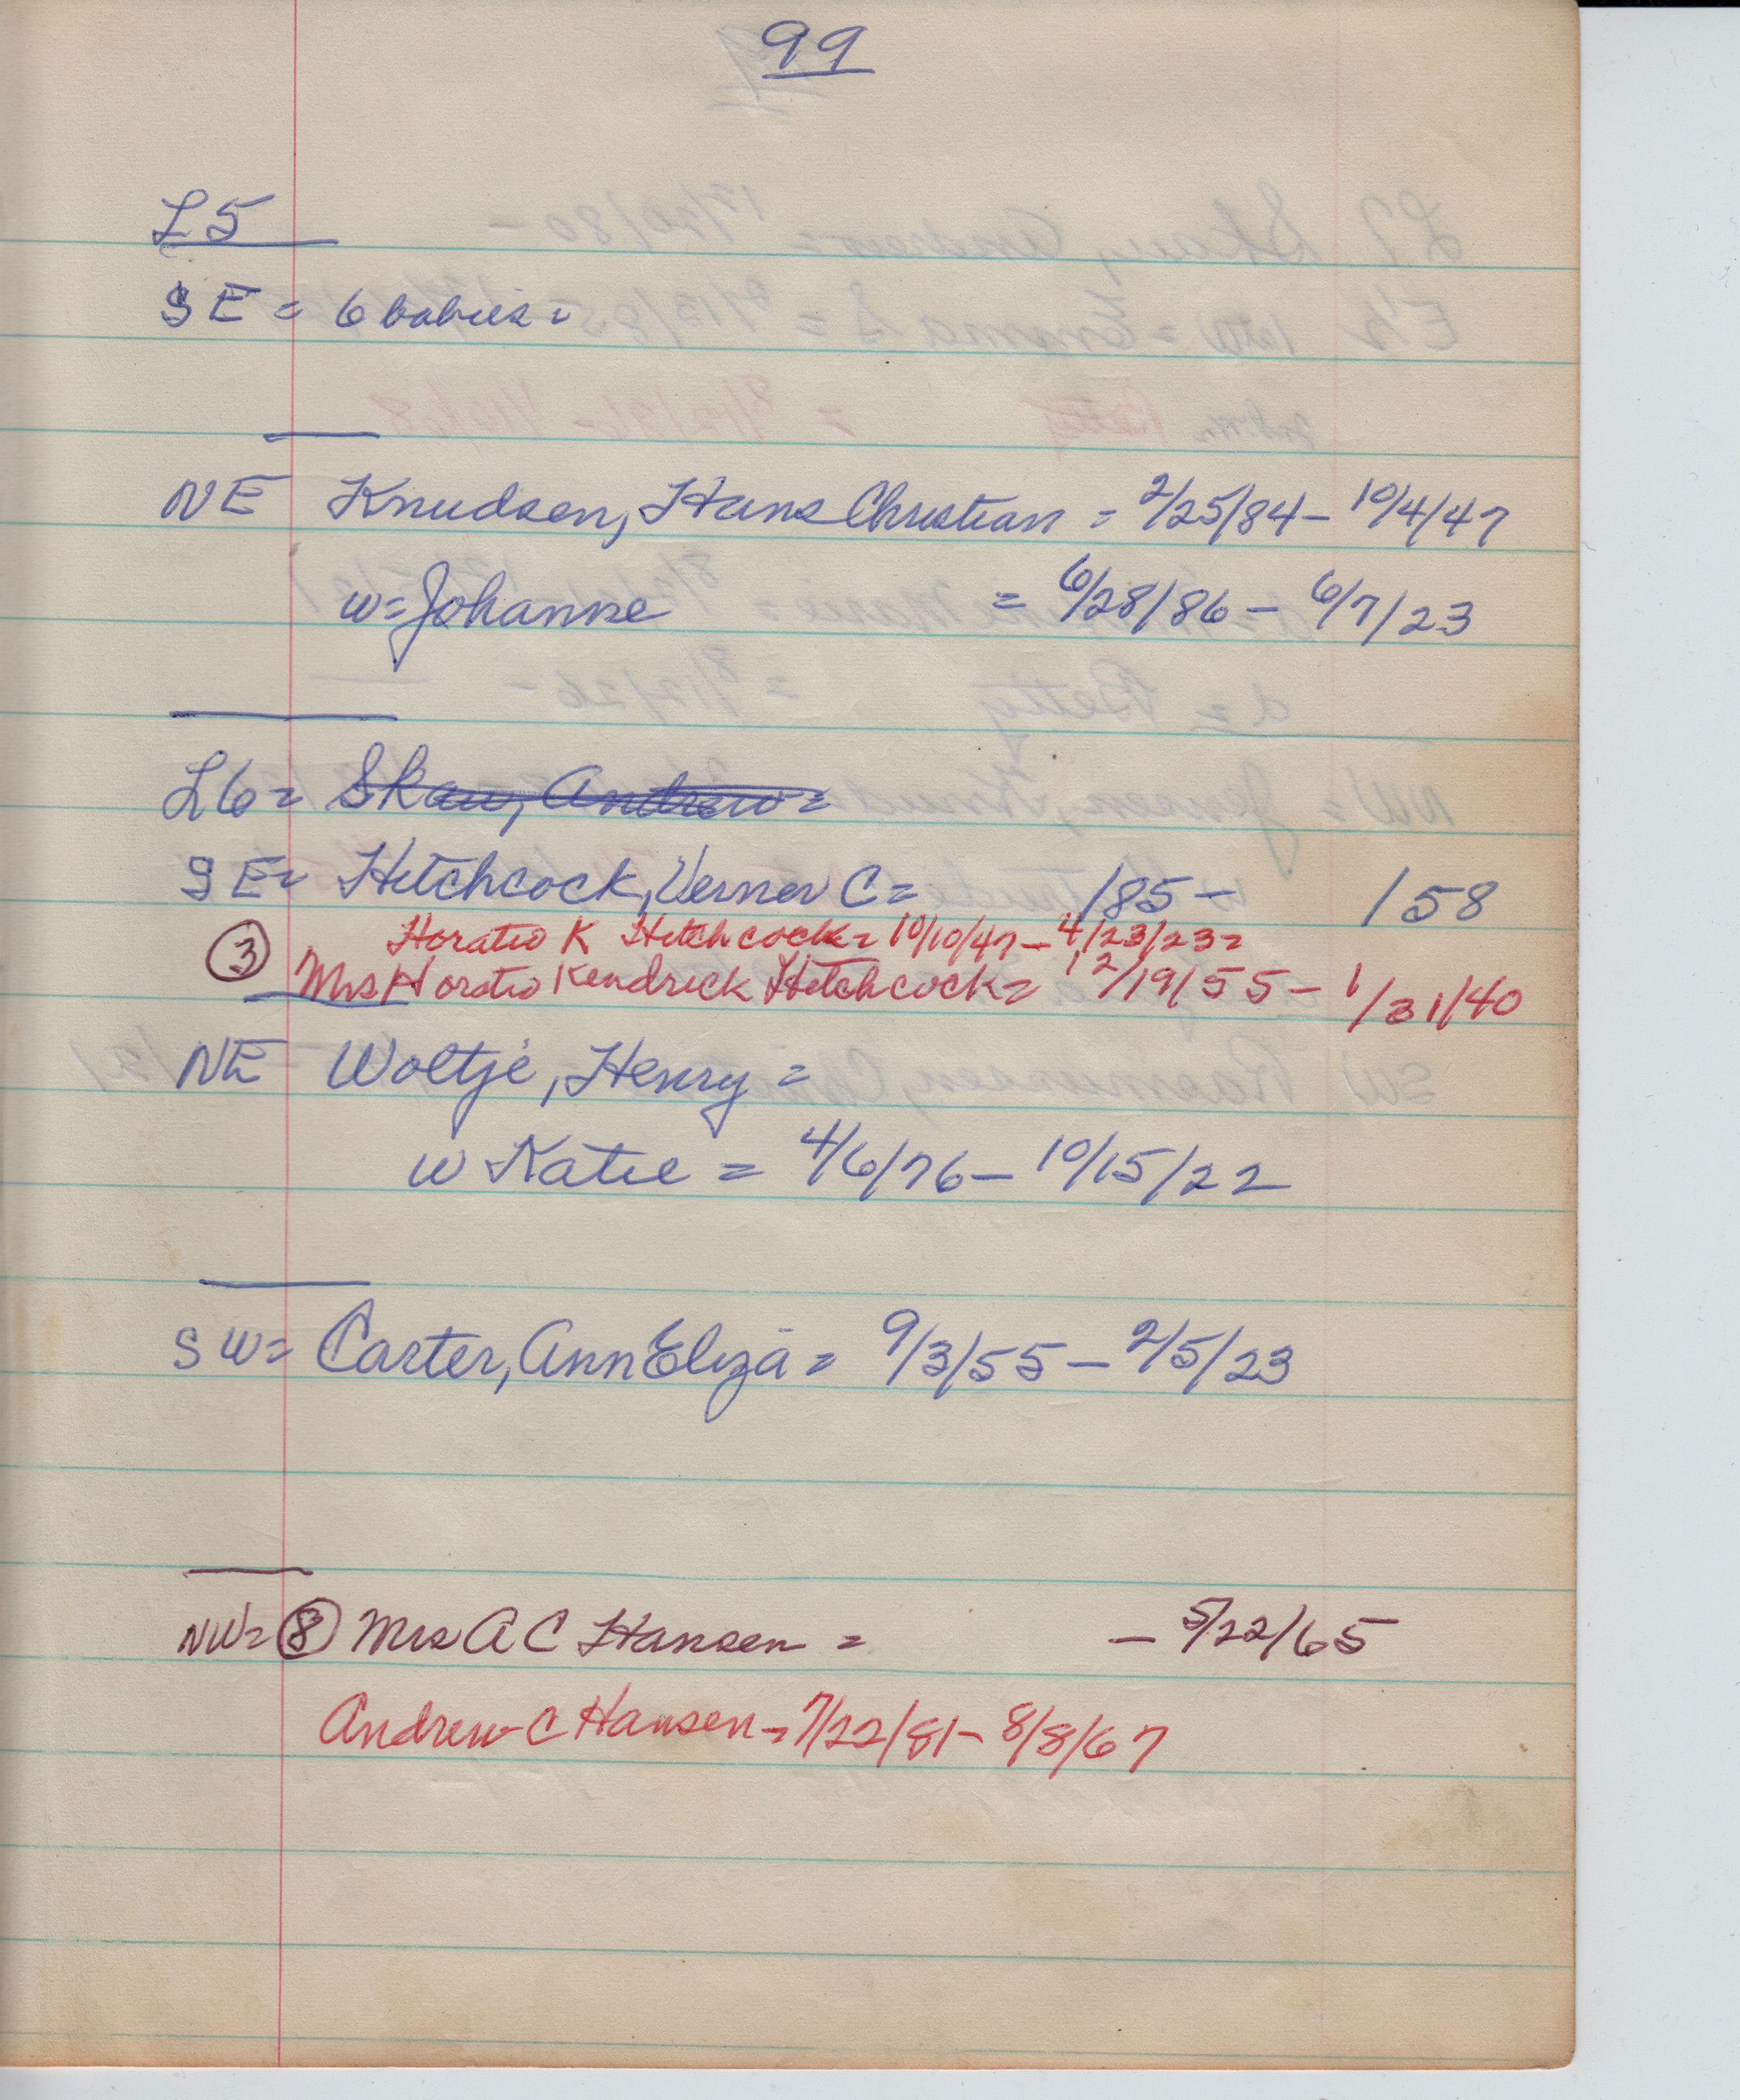 99
L5
SE = 6 babies =
NE Knudsen, Hans Christian = 2/25/84 - 10/4/47
w = Johanne = 6/28/86 - 6/7/23
L6 = Skau, Andrew =
SE = Hitchcock, Verner C = /85 - /58
Horatio K Hitchcock = 10/10/47 - 4/23/23 =
③ Mrs Horatio Kendrick Hitchcock = 12/19/55 - 1/31/40
NE Woltje, Henry =
w Katie = 4/6/76 - 10/15/22
SW = Carter, Ann Eliza = 9/3/55 - 2/5/23
NW = ⑧ Mrs A C Hansen = - 5/22/65
Andrew C Hansen - 7/22/81 - 8/8/67